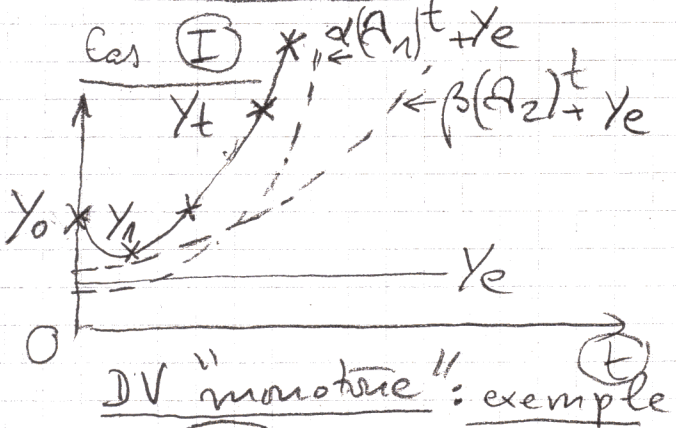 Cas I
α(λ₁)ᵗ + Ye
Yt
← β(λ₂)ᵗ + Ye
Y₀
Y₁
Ye
O
t
DV "monotone" : exemple